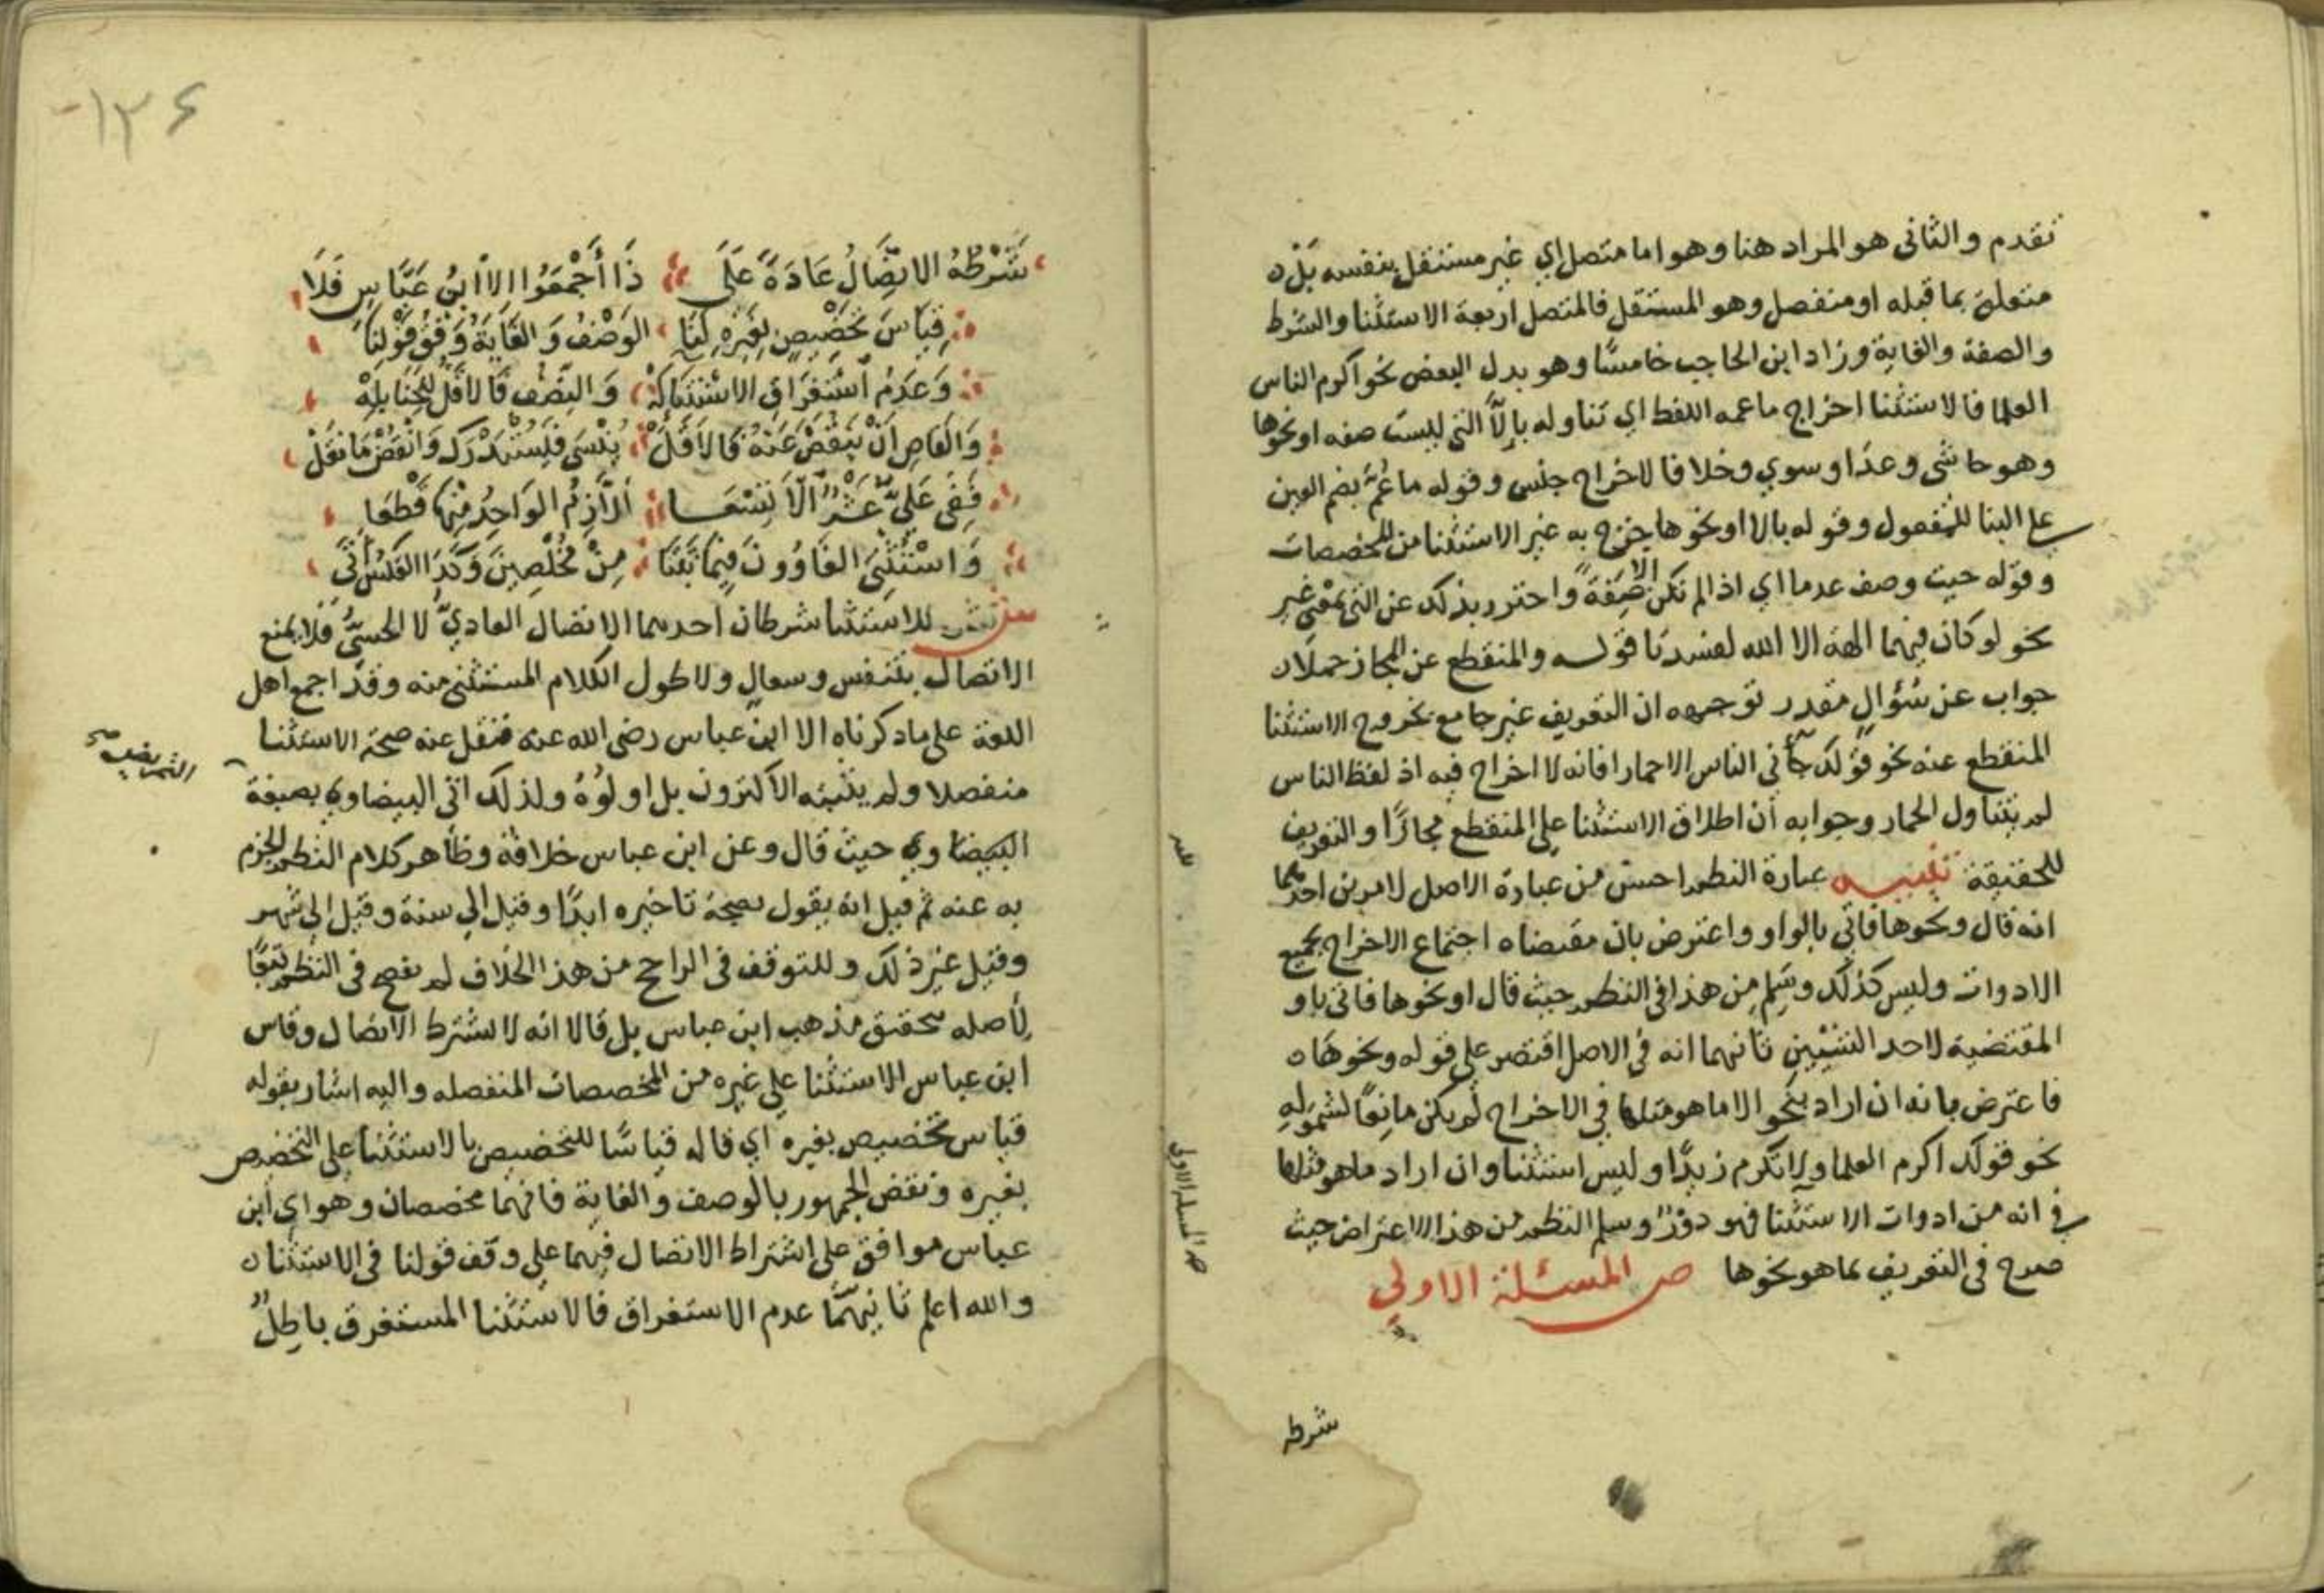 تقدم والثانى هو المراد هنا وهو اما متصل اي غير مستقل بنفسه بل
متعلق بما قبله او منفصل وهو المستقل فالمتصل اربعة الاستثنا والشرط
والصفة والغاية وزاد ابن الحاجب خامسًا وهو بدل البعض نحو اكرم الناس
العلما فالاستثنا اخراج ما عمه اللفظ اي تناوله بالّا التى ليست صفه او نحوها
وهو حاشى وعدا وسوي وخلا فالاخراج جنس وقوله ما عُمَّ بضم العين
على البنا للمفعول وقوله بالا او نحوها يخرج به غير الاستثنا من المخصصات
وقوله حيث وصف عدما اي اذا لم تكن الا صِفَةً واحترز بذلك عن التى بمعنى غير
نحو لو كان فيهما الهة الا الله لفسدتا قوله والمنقطع عن المجاز حملا
جواب عن سُؤال مقدر توجيهه ان التعريف غير جامع بخروج الاستثنا
المنقطع عنه نحو قولك جآنى الناس الا حمارا فانه لا اخراج فيه اذ لفظ الناس
لم يتناول الحمار وجوابه أن اطلاق الاستثنا على المنقطع مجازًا والتعريف
للحقيقة تنبيه عبارة النظم احسن من عبارة الاصل لامرين احدهما
انه قال ونحوها فاتى بالواو واعترض بان مقتضاه اجتماع الاخراج بجميع
الادوات وليس كذلك وسَلِم من هذا فى النظم حيث قال او نحوها فاتى باو
المقتضية لاحد الشيئين ثانيهما انه فى الاصل اقتصر على قوله ونحوها
فاعترض بانه ان اراد بنحو الا ما هو مثلها في الاخراج لم يكن مانعًا لشموله
نحو قولك اكرم العلما ولا تكرم زيدًا وليس استثنا وان اراد ما هو مثلها
في انه من ادوات الاستثنا فهو دوْرٌ وسلم النظم من هذا الاعتراض حيث
صرح فى التعريف بما هو نحوها ص المسئلة الاولي
شرطه
١٢٤
شَرْطُهُ الاتِّصَالُ عَادَةً عَلَى ذَا أَجْمَعُوا الا ابنُ عَبَّاسٍ فَلَا
قِيَاسَ تَخْصِيصٍ بِغَيْرِهِ لَنَا الوَصْفُ وَالغَايَةُ وَفْقُ قَوْلِنَا
وَعَدَمُ اسْتِغْرَاقِ الاسْتِثْنَا وَالنِّصْفِ فَالأَقَلِّ لِلْحَنَابِلَهْ
وَالقَاضِ أَنْ يَنْقُصَ عَنْهُ فَالأَقَلّْ يُنْسَى فَلْيُسْتَدْرَكْ وَانْقُضْ مَا نَقَلْ
فَفِى عَلَيَّ عَشْرٌ الَّا تِسْعَا أَلْزِمَ الوَاحِدُ مِنْهَا قَطْعَا
وَاسْتُثْنِيَ الغَاوُونَ فِيمَا بَيَّنَا مِنْ مُخْلِصِينَ وَكَذَا العَكْسُ أَتَى
ش للاستثنا شرطان احدهما الاتصال العاديّ لا الحسىّ فلا يمنع
الاتصال بتنفس وسعال ولا طول الكلام المستثنى منه وقد اجمع اهل
اللغة على ما ذكرناه الا ابن عباس رضى الله عنه فنقل عنه صحة الاستثنا
منفصلا ولم يثبته الاكثرون بل اولوه ولذلك اتى البيضاوي بصيغة
التمريض صح
البيضاوي حيث قال وعن ابن عباس خلافه وظاهر كلام النظم الجزم
به عنه ثم قيل انه يقول بصحة تاخيره ابدًا وقيل الى سنة وقيل الى شهر
وقيل غير ذلك وللتوقف فى الراجح من هذا الخلاف لم يفصح فى النظم تبعًا
لأصله بتحقيق مذهب ابن عباس بل قالا انه لا يشترط الاتصال وقاس
ابن عباس الاستثنا على غيره من المخصصات المنفصله واليه اشار بقوله
قياس تخصيص بغيره اي قاله قياسًا للتخصيص بالاستثنا على التخصيص
بغيره ونقض الجمهور بالوصف والغاية فانهما مخصصان وهو اي ابن
عباس موافق على اشتراط الاتصال فيهما على وفق قولنا فى الاستثنا
والله اعلم ثانيهما عدم الاستغراق فالاستثنا المستغرق باطلٌ